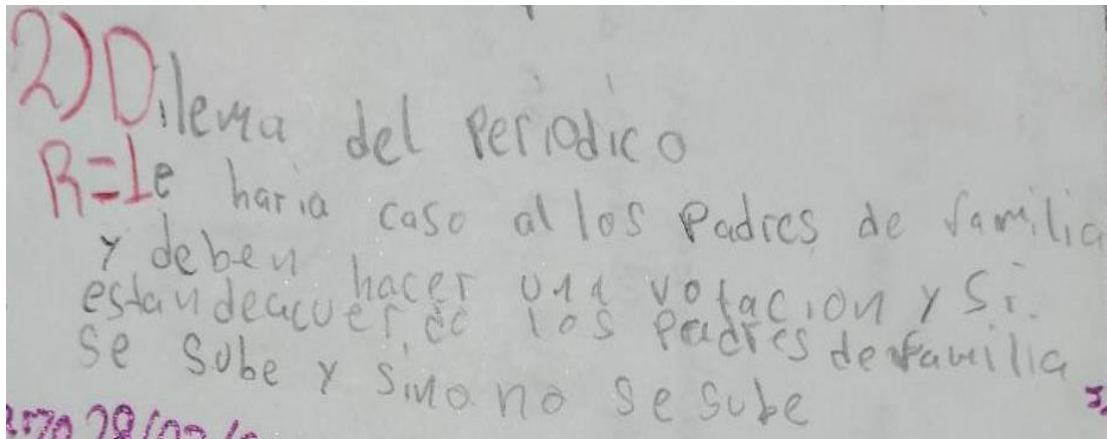 2) Dilema del Periodico
R=Le haria caso al los Padres de familia
y deben hacer una votacion y si.
estandeacuerdo los Padres de familia
se sube y sino no se sube